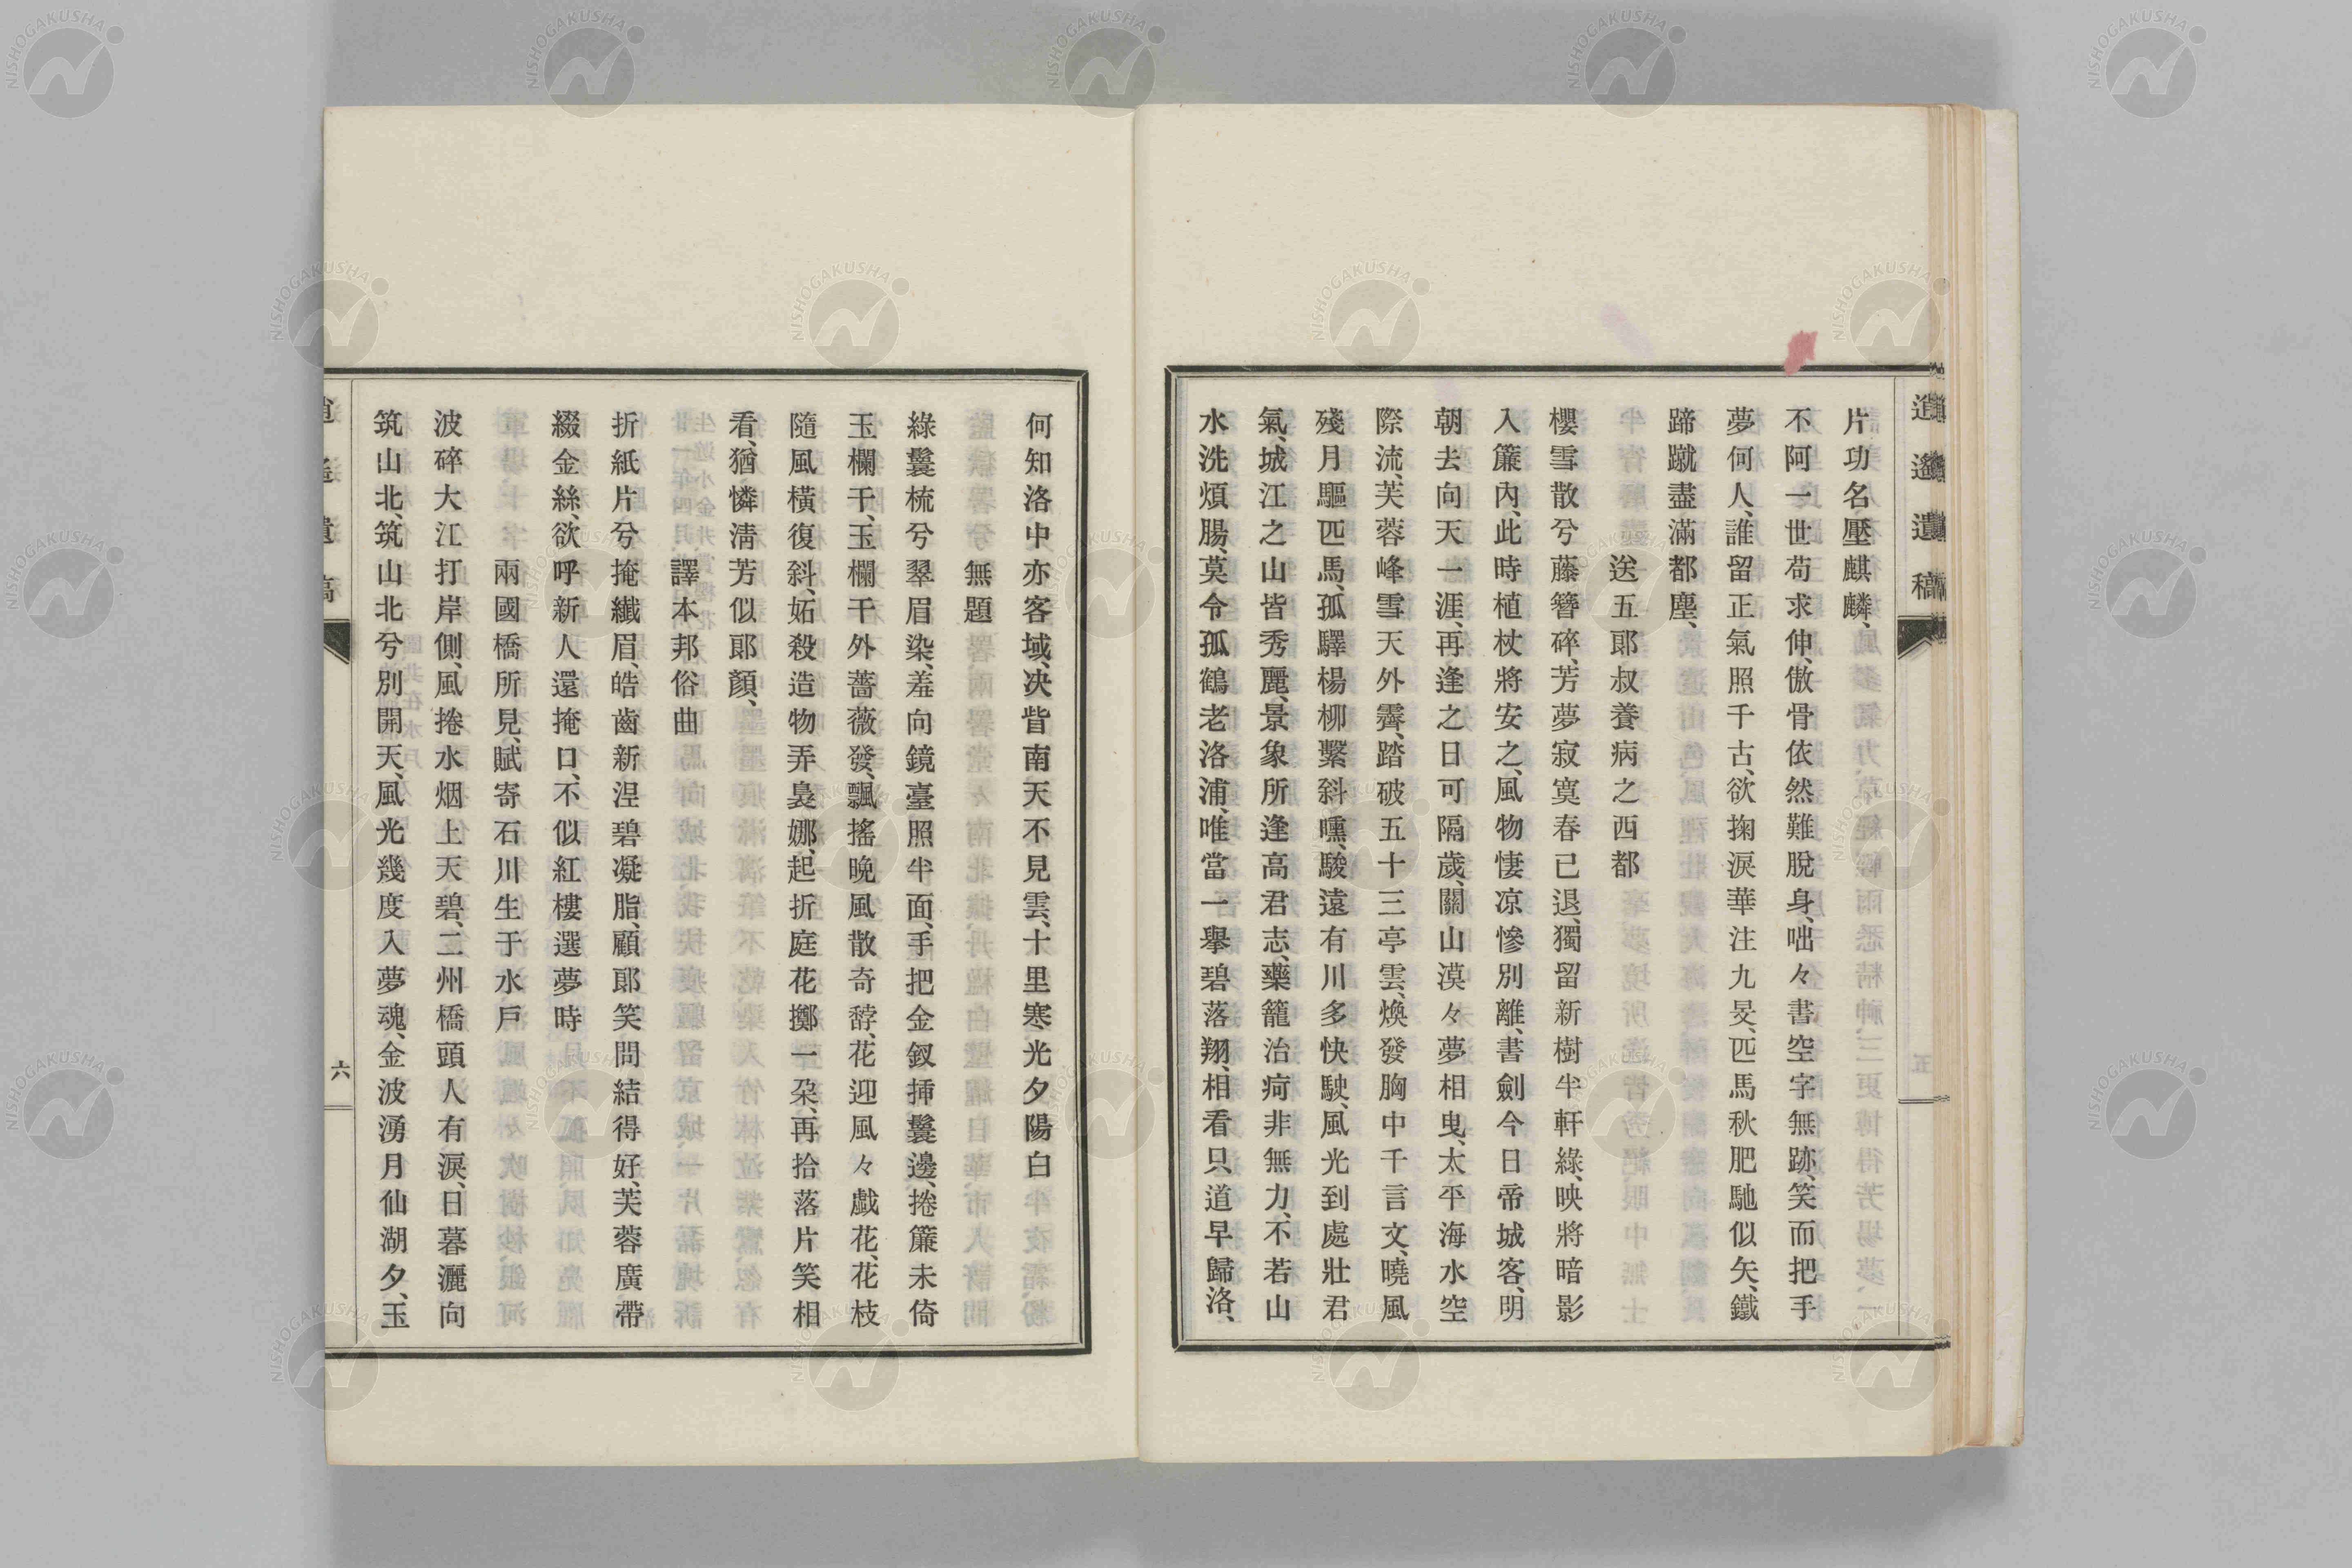 逍遙遺稿
片功名壓麒麟、
不阿一世苟求伸、傲骨依然難脫身、咄々書空字無跡、笑而把手
夢何人、誰留正氣照千古、欲掬淚華注九旻、匹馬秋肥馳似矢、鐵
蹄蹴盡滿都塵、
送五郎叔養病之西都
櫻雪散兮藤簪碎、芳夢寂寞春已退、獨留新樹半軒綠、映將暗影
入簾內、此時植杖將安之、風物悽凉慘別離、書劍今日帝城客、明
朝去向天一涯、再逢之日可隔歲、關山漠々夢相曳、太平海水空
際流、芙蓉峰雪天外霽、踏破五十三亭雲、煥發胸中千言文、曉風
殘月驅匹馬、孤驛楊柳繫斜曛、駿遠有川多快駛、風光到處壯君
氣、城江之山皆秀麗、景象所逢高君志、藥籠治疴非無力、不若山
水洗煩腸、莫令孤鶴老洛浦、唯當一擧碧落翔、相看只道早歸洛、
何知洛中亦客域、决眥南天不見雲、十里寒光夕陽白
無題
綠鬟梳兮翠眉染、羞向鏡臺照半面、手把金釵挿鬟邊、捲簾未倚
玉欄干、玉欄干外薔薇發、飄搖晩風散奇馞、花迎風々戲花、花枝
隨風橫復斜、妬殺造物弄裊娜、起折庭花擲一朶、再拾落片笑相
看、猶憐淸芳似郞顏、
譯本邦俗曲
折紙片兮掩纖眉、皓齒新涅碧凝脂、顧郞笑問結得好、芙蓉廣帶
綴金絲、欲呼新人還掩口、不似紅樓選夢時
兩國橋所見、賦寄石川生于水戶
波碎大江打岸側、風捲水烟上天碧、二州橋頭人有淚、日暮灑向
筑山北、筑山北兮別開天、風光幾度入夢魂、金波湧月仙湖夕、玉
逍遙遺稿
六
NISHOGAKUSHA